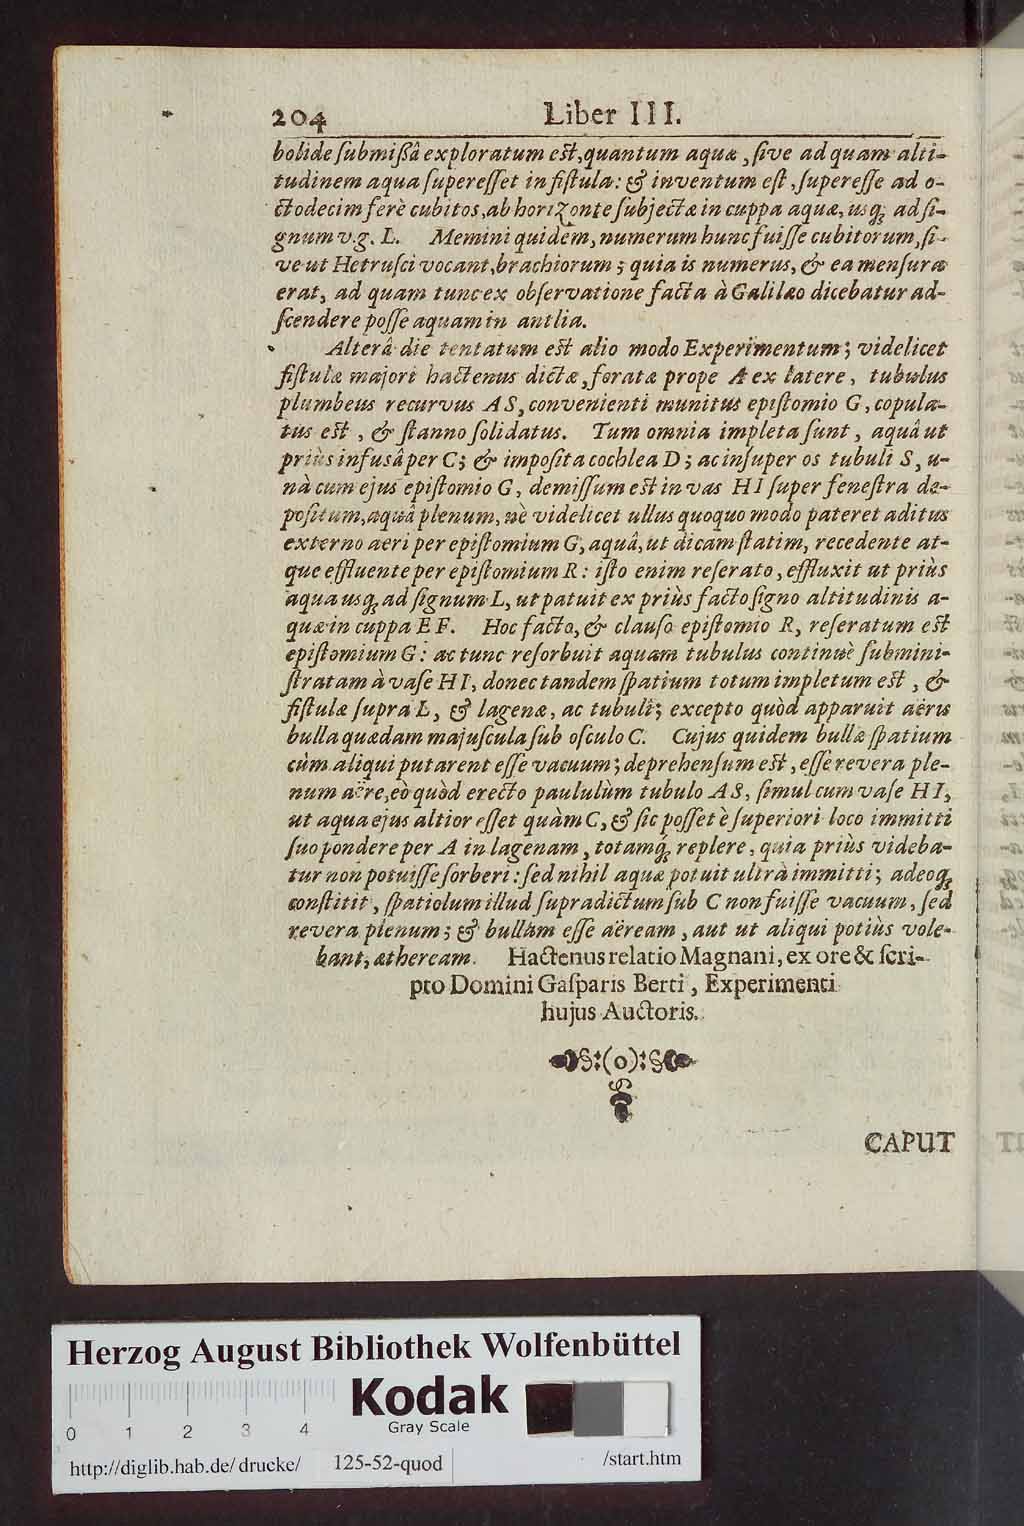 204 Liber III.
bolide ſubmiſſâ exploratum est, quantum aquæ, ſive ad quam alti-
tudinem aqua ſupereſſet in fiſtula: & inventum eſt, ſupereſſe ad o-
ctodecim ferè cubitos, ab horizonte ſubjectæ in cuppa aquæ, usq; ad ſi-
gnum v.g. L. Memini quidem, numerum hunc fuiſſe cubitorum, ſi-
ve ut Hetruſci vocant, brachiorum; quia is numerus, & ea menſura
erat, ad quam tunc ex obſervatione facta à Galilæo dicebatur ad-
ſcendere poſſe aquam in antlia.
Alterâ die tentatum est alio modo Experimentum; videlicet
fiſtulæ majori hactenus dictæ, foratæ prope A ex latere, tubulus
plumbeus recurvus AS, convenienti munitus epiſtomio G, copula-
tus est, & ſtanno ſolidatus. Tum omnia impleta ſunt, aquâ ut
priùs infuſâ per C; & impoſita cochlea D; ac inſuper os tubuli S, u-
nà cum ejus epiſtomio G, demiſſum est in vas HI ſuper feneſtra de-
poſitum, aquâ plenum, nè videlicet ullus quoquo modo pateret aditus
externo aeri per epiſtomium G, aquâ, ut dicam ſtatim, recedente at-
que effluente per epiſtomium R: iſto enim reſerato, effluxit ut priùs
aqua usq; ad ſignum L, ut patuit ex priùs facto ſigno altitudinis a-
quæ in cuppa EF. Hoc facto, & clauſo epiſtomio R, reſeratum est
epiſtomium G: ac tunc reſorbuit aquam tubulus continuè ſubmini-
ſtratam à vaſe HI, donec tandem ſpatium totum impletum est, &
fiſtulæ ſupra L, & lagenæ, ac tubuli; excepto quòd apparuit aëris
bulla quædam majuſcula ſub oſculo C. Cujus quidem bullæ ſpatium
cùm aliqui putarent eſſe vacuum; deprehenſum est, eſſe revera ple-
num aëre, eò quòd erecto paululùm tubulo AS, ſimul cum vaſe HI,
ut aqua ejus altior eſſet quàm C, & ſic poſſet è ſuperiori loco immitti
ſuo pondere per A in lagenam, totamq; replere, quia priùs videba-
tur non potuiſſe ſorberi: ſed nihil aquæ potuit ultrà immitti; adeoq;
conſtitit, ſpatiolum illud ſupradictum ſub C non fuiſſe vacuum, ſed
revera plenum; & bullam eſſe aëream, aut ut aliqui potiùs vole-
bant, ætheream. Hactenus relatio Magnani, ex ore & ſcri-
pto Domini Gaſparis Berti, Experimenti
hujus Auctoris.
§:(o):§
CAPUT
Herzog August Bibliothek Wolfenbüttel
Kodak
Gray Scale
0 1 2 3 4
http://diglib.hab.de/drucke/ 125-52-quod /start.htm